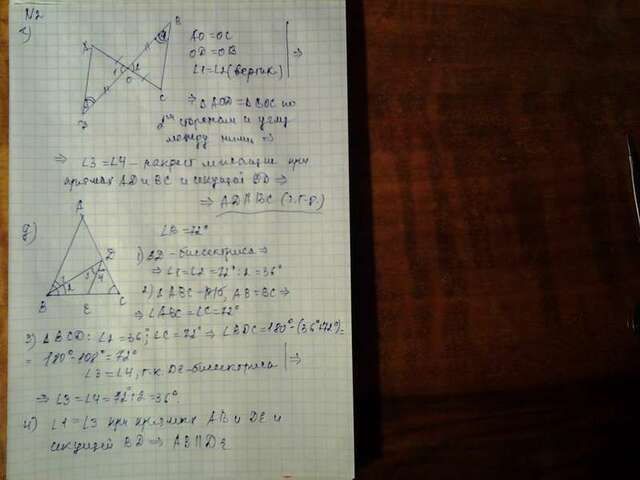 N2
1)
A
B
O
C
D
1
2
4
3
AO = OC
OD = OB
∠1 = ∠2 (вертик)
⇒
⇒ △AOD = △BOC по
2ум сторонам и углу
между ними ⇒
⇒ ∠3 = ∠4 - накрест лежащие при
прямых AD и BC и секущей BD ⇒
⇒ AD || BC (ч.т.д.)
2)
A
B
C
D
E
1
2
3
4
∠B = 72°
1) BD - биссектриса ⇒
⇒ ∠1 = ∠2 = 72° : 2 = 36°
2) △ABC - р/б, AB = BC ⇒
⇒ ∠ABC = ∠C = 72°
3) △BCD: ∠2 = 36°; ∠C = 72° ⇒ ∠BDC = 180° - (36° + 72°) =
= 180° - 108° = 72°
∠3 = ∠4, т.к. DE - биссектриса
⇒
⇒ ∠3 = ∠4 = 72° : 2 = 36°
4) ∠1 = ∠3 при прямых AB и DE и
секущей BD ⇒ AB || DE